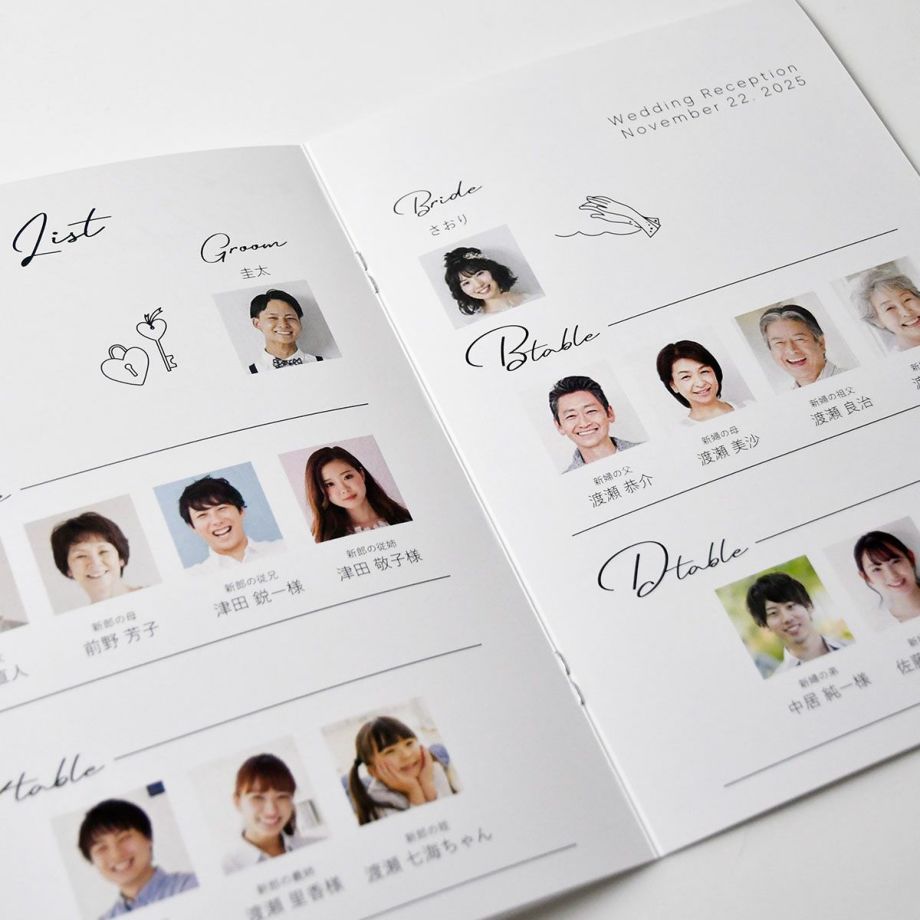 List
Groom
圭太
新郎の母
前野 芳子
新郎の従兄
津田 鋭一様
新郎の従姉
津田 敬子様
直人
table
新郎の義姉
渡瀬 里香様
新郎の姪
渡瀬 七海ちゃん
Wedding Reception
November 22. 2025
Bride
さおり
Btable
新婦の父
渡瀬 恭介
新婦の母
渡瀬 美沙
新婦の祖父
渡瀬 良治
Dtable
新婦の弟
中居 純一様
佐藤